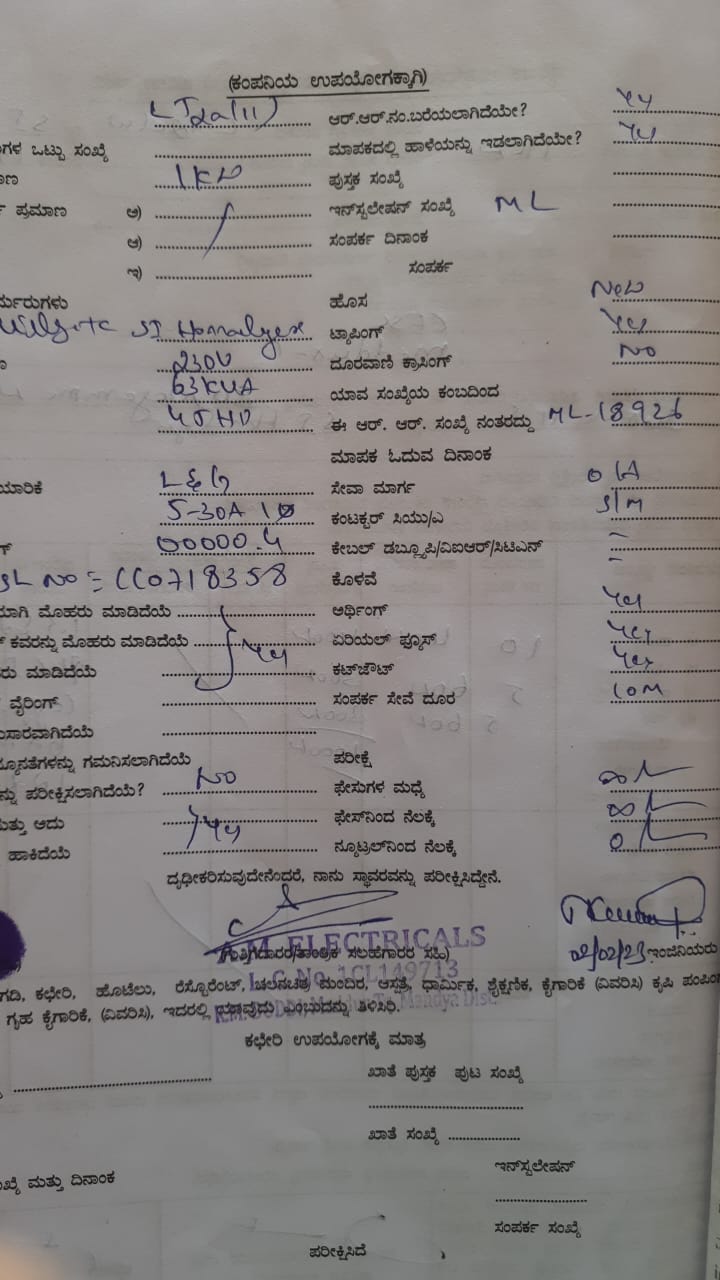 (ಕಂಪನಿಯ ಉಪಯೋಗಕ್ಕಾಗಿ)
LT2a(ii) ಆರ್.ಆರ್.ನಂ.ಬರೆಯಲಾಗಿದೆಯೇ? yes
ಗಳ ಒಟ್ಟು ಸಂಖ್ಯೆ ಮಾಪಕದಲ್ಲಿ ಹಾಳೆಯನ್ನು ಇಡಲಾಗಿದೆಯೇ? yes
1KW ಪುಸ್ತಕ ಸಂಖ್ಯೆ
ಪ್ರಮಾಣ ಅ) ಇನ್‌ಸ್ಟಲೇಷನ್ ಸಂಖ್ಯೆ ML
ಆ) ಸಂಪರ್ಕ ದಿನಾಂಕ
ಇ) ಸಂಪರ್ಕ
ಹೊಸ New
ಟ್ಯಾಪಿಂಗ್ yes
230V ದೂರವಾಣಿ ಕ್ರಾಸಿಂಗ್ NO
63KVA ಯಾವ ಸಂಖ್ಯೆಯ ಕಂಬದಿಂದ
ಈ ಆರ್. ಆರ್. ಸಂಖ್ಯೆ ನಂತರದ್ದು ML-18926
ಮಾಪಕ ಓದುವ ದಿನಾಂಕ
ಯಾರಿಕೆ L&G ಸೇವಾ ಮಾರ್ಗ
5-30A 1Ø ಕಂಟಕ್ಟರ್ ಸಿಯು/ಎ
00000.4 ಕೇಬಲ್ ಡಬ್ಲ್ಯೂಪಿ/ವಿಐಆರ್/ಸಿಟಿಎಸ್
SL NO = CC0718358 ಕೊಳವೆ
ಯಾಗಿ ಮೊಹರು ಮಾಡಿದೆಯೆ ಅರ್ಥಿಂಗ್ yes
ಕವರನ್ನು ಮೊಹರು ಮಾಡಿದೆಯೆ yes ಏರಿಯಲ್ ಫ್ಯೂಸ್ yes
ರು ಮಾಡಿದೆಯೆ ಕಟ್‌ಔಟ್ yes
ವೈರಿಂಗ್ ಸಂಪರ್ಕ ಸೇವೆ ದೂರ 10M
ಸಾರವಾಗಿದೆಯೆ
ನ್ಯೂನತೆಗಳನ್ನು ಗಮನಿಸಲಾಗಿದೆಯೆ ಪರೀಕ್ಷೆ
ನ್ನು ಪರೀಕ್ಷಿಸಲಾಗಿದೆಯೆ? NO ಫೇಸುಗಳ ಮಧ್ಯೆ
ಮತ್ತು ಅದು yes ಫೇಸ್‌ನಿಂದ ನೆಲಕ್ಕೆ
ಹಾಕಿದೆಯೆ ನ್ಯೂಟ್ರಲ್‌ನಿಂದ ನೆಲಕ್ಕೆ
ದೃಢೀಕರಿಸುವುದೇನೆಂದರೆ, ನಾನು ಸ್ಥಾವರವನ್ನು ಪರೀಕ್ಷಿಸಿದ್ದೇನೆ.
M ELECTRICALS
ಗುತ್ತಿಗೆದಾರರ/ತಾಂತ್ರಿಕ ಸಲಹೆಗಾರರ ಸಹಿ) 02/02/23 ಇಂಜಿನಿಯರು
L.C.No. 1CL149713
ಗಡಿ, ಕಛೇರಿ, ಹೊಟೆಲು, ರೆಸ್ಟೊರೆಂಟ್, ಚಲನಚಿತ್ರ ಮಂದಿರ, ಆಸ್ಪತ್ರೆ, ಧಾರ್ಮಿಕ, ಶೈಕ್ಷಣಿಕ, ಕೈಗಾರಿಕೆ (ವಿವರಿಸಿ) ಕೃಷಿ ಪಂಪಿ
ಗೃಹ ಕೈಗಾರಿಕೆ, (ವಿವರಿಸಿ), ಇದರಲ್ಲಿ ಯಾವುದು ಎಂಬುದನ್ನು ತಿಳಿಸಿರಿ.
Mandya Dist
ಕಛೇರಿ ಉಪಯೋಗಕ್ಕೆ ಮಾತ್ರ
ಖಾತೆ ಪುಸ್ತಕ ಪುಟ ಸಂಖ್ಯೆ
ಖಾತೆ ಸಂಖ್ಯೆ
ಇನ್‌ಸ್ಟಲೇಷನ್
ಖ್ಯೆ ಮತ್ತು ದಿನಾಂಕ
ಸಂಪರ್ಕ ಸಂಖ್ಯೆ
ಪರೀಕ್ಷಿಸಿದೆ